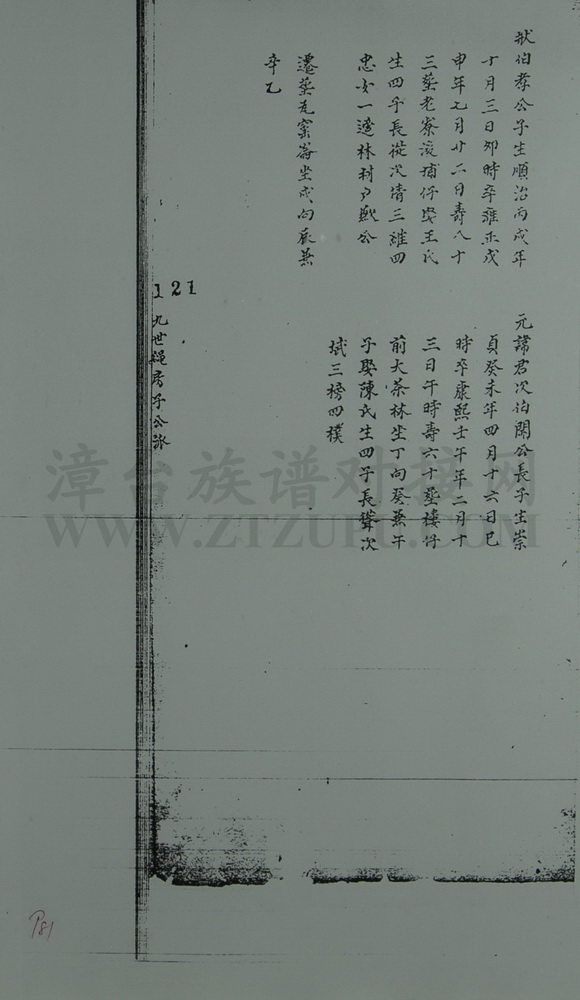 狀伯孝公子生順治丙戌年
十月三日卯時卒雍正戊
申年七月廿二日壽八十
三葬老寮後埔仔娶王氏
生四子長從次倩三維四
忠女一適林村
遷葬瓦窑崙坐戌向辰兼
辛乙
元諱君次伯開公長子生崇
貞癸未年四月十六日巳
時卒康熙壬午年二月十
三日午時壽六十葬樓仔
前大茶林坐丁向癸兼午
子娶陳氏生四子長聳次
斌三榜四樸
121
九世繩房子公派
漳台族谱对接网
WWW.ZTZUPU.COM
P81